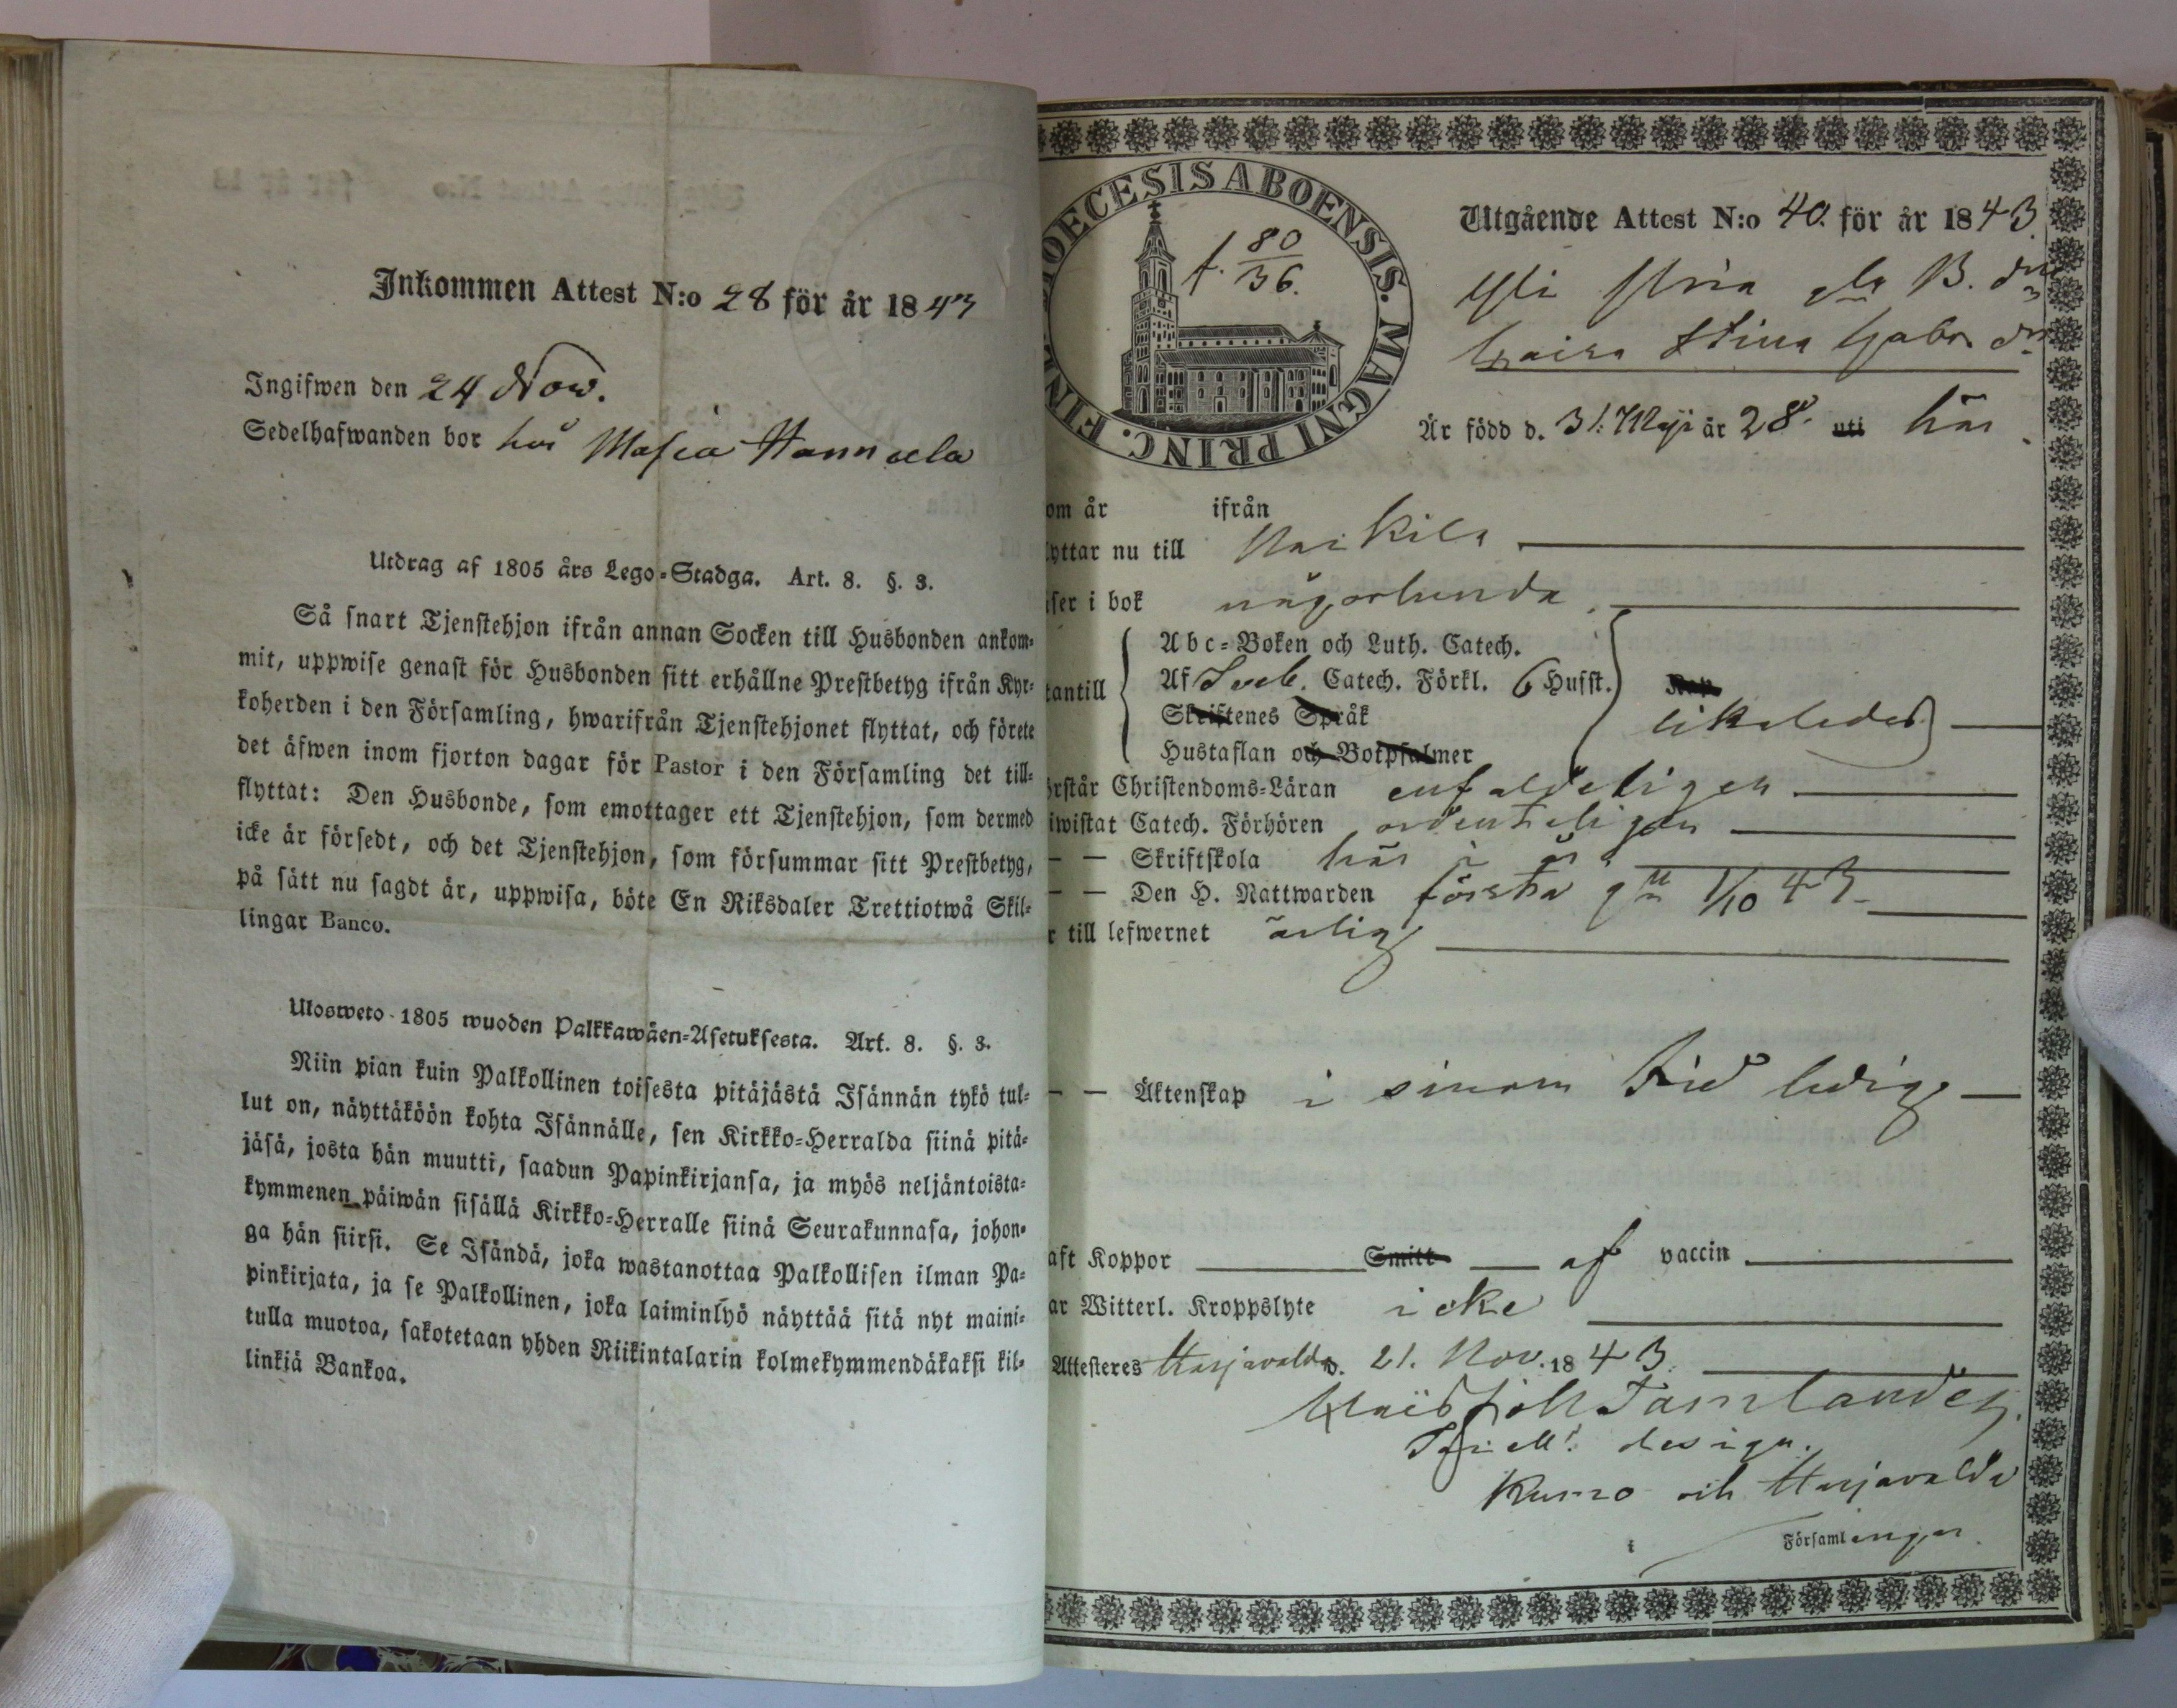 Inkommen Attest N:o 28 för år 1843
Ingifwen den 24 Nov.
Sedelhafwanden bor hos Masia Hannula
Utdrag af 1805 års Lego-Stadga. Art. 8. §. 3.
Så snart Tjenstehjon ifrån annan Socken till Husbonden ankom-
mit, uppwise genast för Husbonden sitt erhållne Prestbetyg ifrån Kyr-
koherden i den Församling, hwarifrån Tjenstehjonet flyttat, och förete
det äfwen inom fjorton dagar för Pastor i den Församling det till-
flyttat: Den Husbonde, som emottager ett Tjenstehjon, som dermed
icke är försedt, och det Tjenstehjon, som försummar sitt Prestbetyg,
på sätt nu sagdt är, uppwisa, böte En Riksdaler Trettiotwå Skil-
lingar Banco.
Ulosweto 1805 wuoden Palkkawäen-Asetuksesta. Art. 8. §. 3.
Niin pian kuin Palkollinen toisesta pitäjästä Isännän tykö tul-
lut on, näyttäköön kohta Isännälle, sen Kirkko-Herralda siinä pitä-
jäsä, josta hän muutti, saadun Papinkirjansa, ja myös neljäntoista-
kymmenen päiwän sisällä Kirkko-Herralle siinä Seurakunnasa, johon-
ga hän siirsi. Se Isändä, joka wastanottaa Palkollisen ilman Pa-
pinkirjata, ja se Palkollinen, joka laiminlyö näyttää sitä nyt maini-
tulla muotoa, sakotetaan yhden Riikintalarin kolmekymmendäkaksi kil-
linkiä Bankoa.
DIOECESIS ABOENSIS. MAGNI PRINC. FINL.
f. 80/36.
Utgående Attest N:o 40. för år 1843.
B. d:r
Caisa Stina Gabr. d:r
Är född d. 31. Maji år 28. uti här.
om år ifrån
lyttar nu till
iser i bok någorlunda.
Abc-Boken och Luth. Catech.
tantill Af Sveb. Catech. Förkl. 6 Hufst.
Skriftenes Språk likaledes
Hustaflan och Botpsalmer
örstår Christendoms-Läran enfaldeligen
iwistat Catech. Förhören ordenteligen
— — Skriftskola här i år
— — Den H. Nattwarden första g:n 1/10 43
r till lefwernet ärlig
— — Äktenskap i sinom tid ledig
aft Koppor Smitt af vaccin
ar Witterl. Kroppslyte icke
Attesteres Harjavalda d. 21. Nov. 1843.
design.
Kumo och Harjavalda
i Församlingar.